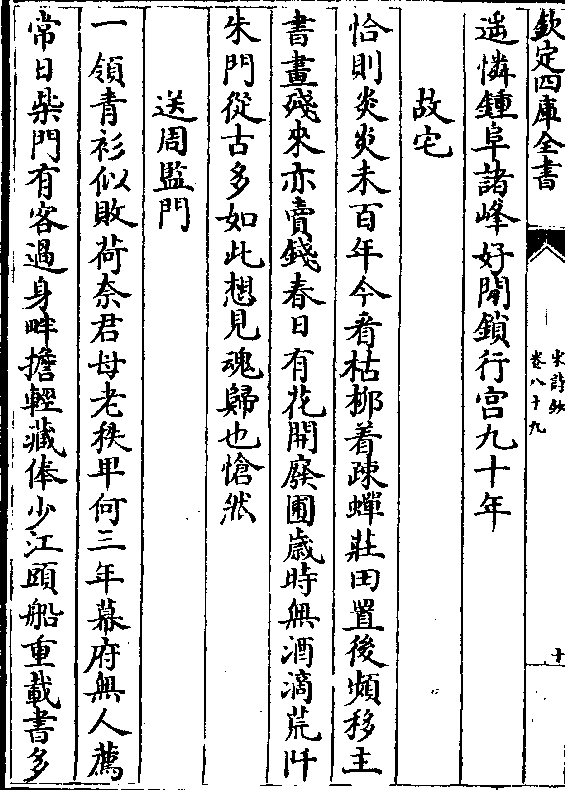 欽定四庫全書
宋詩鈔
卷八十九
十
遥憐鍾阜諸峰好閒鎖行宫九十年
故宅
恰則炎炎未百年今看枯栁着疎蟬莊田置後頻移主
書畫殘來亦賣錢春日有花開廢圃歲時無酒滴荒阡
朱門從古多如此想見魂歸也愴然
送周監門
一領青衫似敗荷奈君母老秩卑何三年幕府無人薦
常日柴門有客過身畔擔輕藏俸少江頭船重載書多